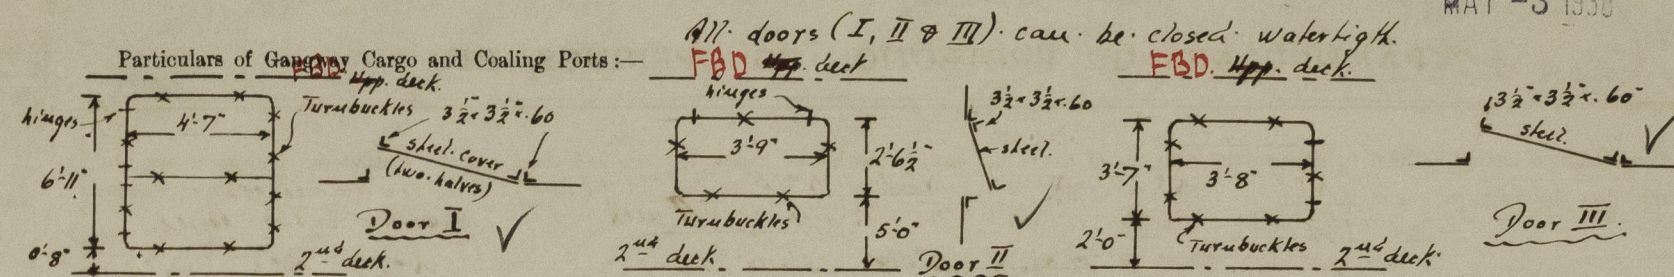 MAY -3 1930
All doors (I, II & III) can be closed watertigth.
Particulars of Gangway Cargo and Coaling Ports:—
FBD Upp. deck.
hinges
Turnbuckles
4'-7"
6'-11"
0'-8"
3 1/2" × 3 1/2" × .60
steel cover
(two halves)
Door I
2nd deck.
FBD Upp. deck
hinges
3'-9"
2'-6 1/2"
Turnbuckles
5'-0"
2nd deck
3 1/2 × 3 1/2 × .60
steel.
Door II
FBD. Upp. deck.
3'-7"
3'-8"
2'-0"
Turnbuckles
2nd deck.
3 1/2" × 3 1/2" × .60"
steel.
Door III.